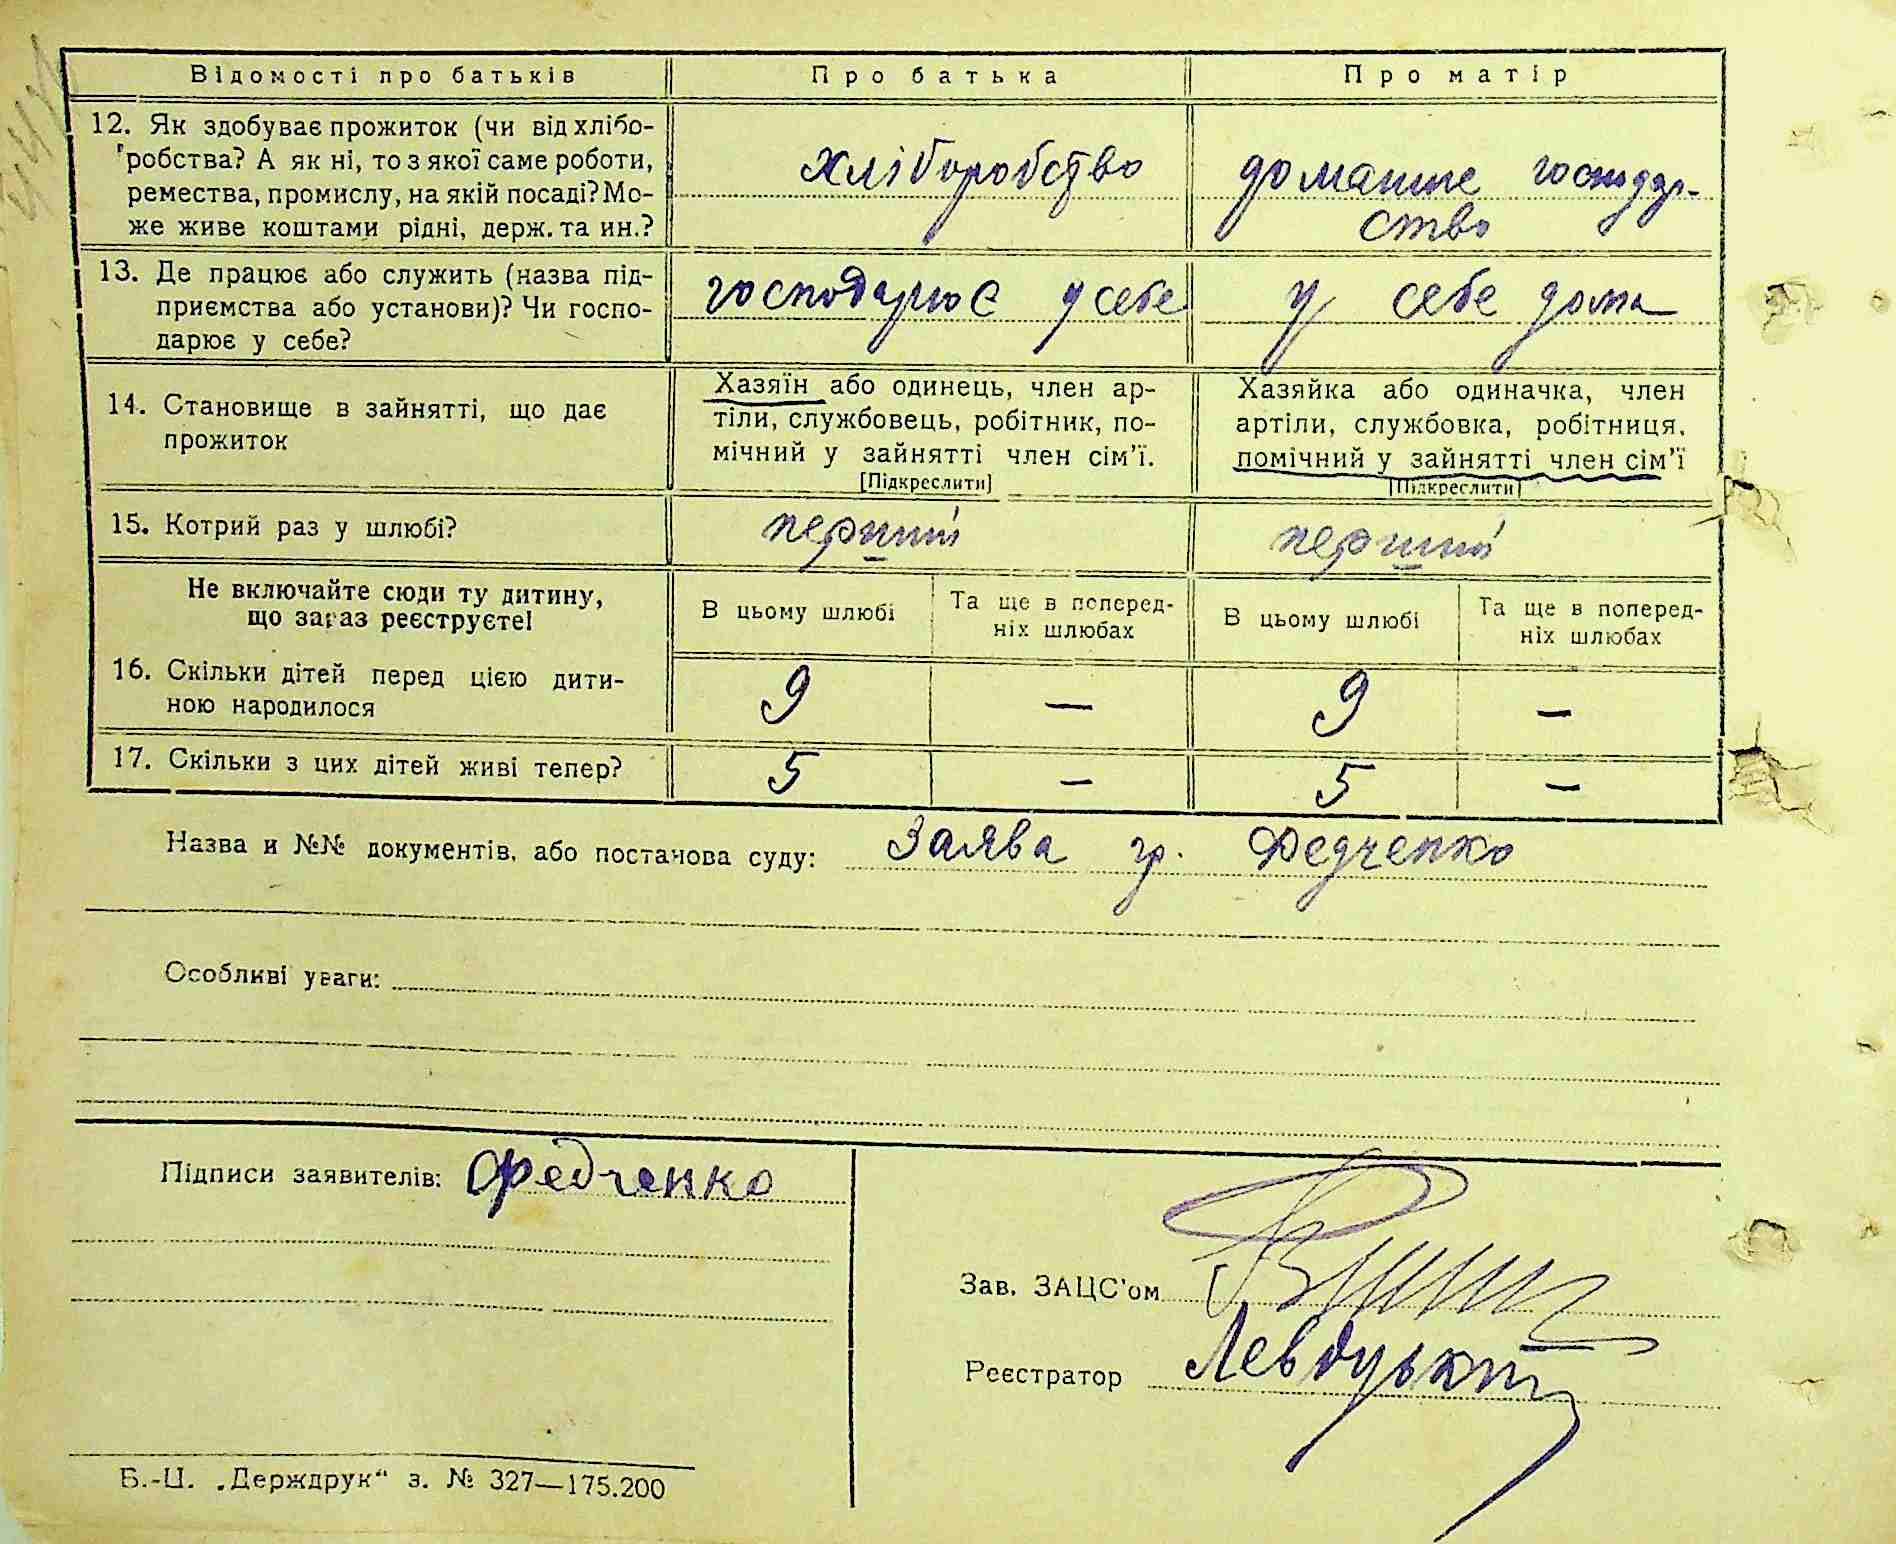 Відомості про батьків
Про батька
Про матір
12. Як здобуває прожиток (чи від хлібо-
робства? А як ні, то з якої саме роботи,
ремества, промислу, на якій посаді? Мо-
же живе коштами рідні, держ. та ин.?
хліборобство
домашне господар-
ство
13. Де працює або служить (назва під-
приємства або установи)? Чи госпо-
дарює у себе?
господарює у себе
у себе дома
14. Становище в зайнятті, що дає
прожиток
Хазяїн або одинець, член ар-
тіли, службовець, робітник, по-
мічний у зайнятті член сім'ї.
[Підкреслити]
Хазяйка або одиначка, член
артіли, службовка, робітниця,
помічний у зайнятті член сім'ї
[Підкреслити]
15. Котрий раз у шлюбі?
перший
перший
Не включайте сюди ту дитину,
що зараз реєструєте!
В цьому шлюбі
Та ще в поперед-
ніх шлюбах
В цьому шлюбі
Та ще в поперед-
ніх шлюбах
16. Скільки дітей перед цією дити-
ною народилося
9 — 9 —
17. Скільки з цих дітей живі тепер?
5 — 5 —
Назва и №№ документів, або постанова суду: Заява гр. Федченко
Особливі уваги:
Підписи заявителів: Федченко
Зав. ЗАЦС'ом
Реєстратор
Б.-Ц. „Держдрук“ з. № 327—175.200